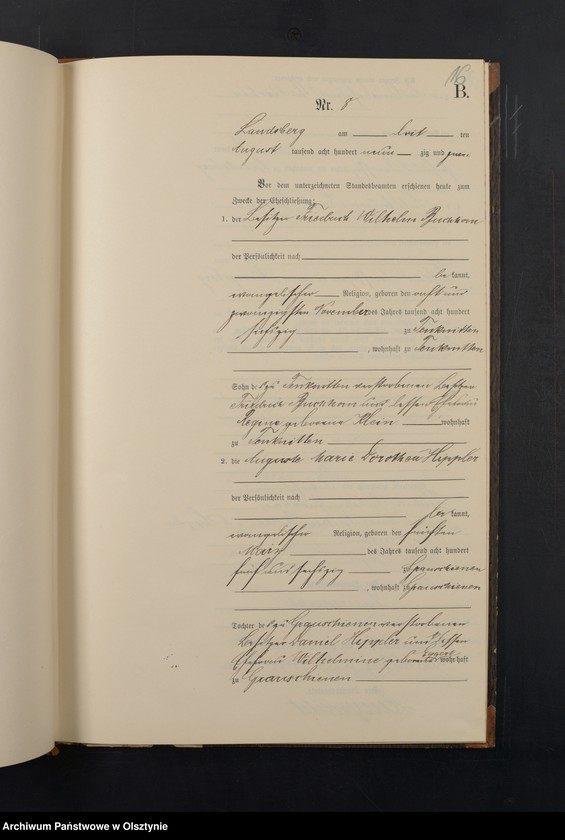 16
B.
Nr. 8
Landsberg am drit ten
August tausend acht hundert neun zig und zwei
Vor dem unterzeichneten Standesbeamten erschienen heute zum
Zwecke der Eheschließung:
1. der Besitzer Friedrich Wilhelm
der Persönlichkeit nach
be kannt,
evangelischer Religion, geboren den acht und
zwanzigsten November des Jahres tausend acht hundert
sechzig zu Tenknitten
, wohnhaft zu Tenknitten
Sohn de s zu Tenknitten verstorbenen Besitzer
Friedrich und dessen Ehefrau
Regine geborene Klein wohnhaft
zu Tenknitten
2. die Auguste Marie Dorothea Hippler
der Persönlichkeit nach
be kannt,
evangelischer Religion, geboren den fünften
März des Jahres tausend acht hundert
fünf und sechzig zu Grauschienen
, wohnhaft zu Grauschienen
Tochter de s zu Grauschienen verstorbenen
Besitzer Daniel Hippler und dessen
Ehefrau Wilhelmine geborene wohnhaft
zu Grauschienen
Archiwum Państwowe w Olsztynie